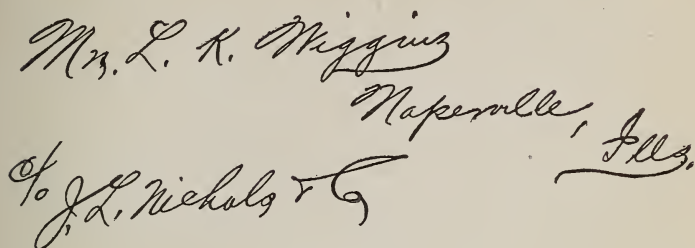 Mr. L. K. Wiggins
Naperville, Ills.
c/o J. L. Nichols & Co